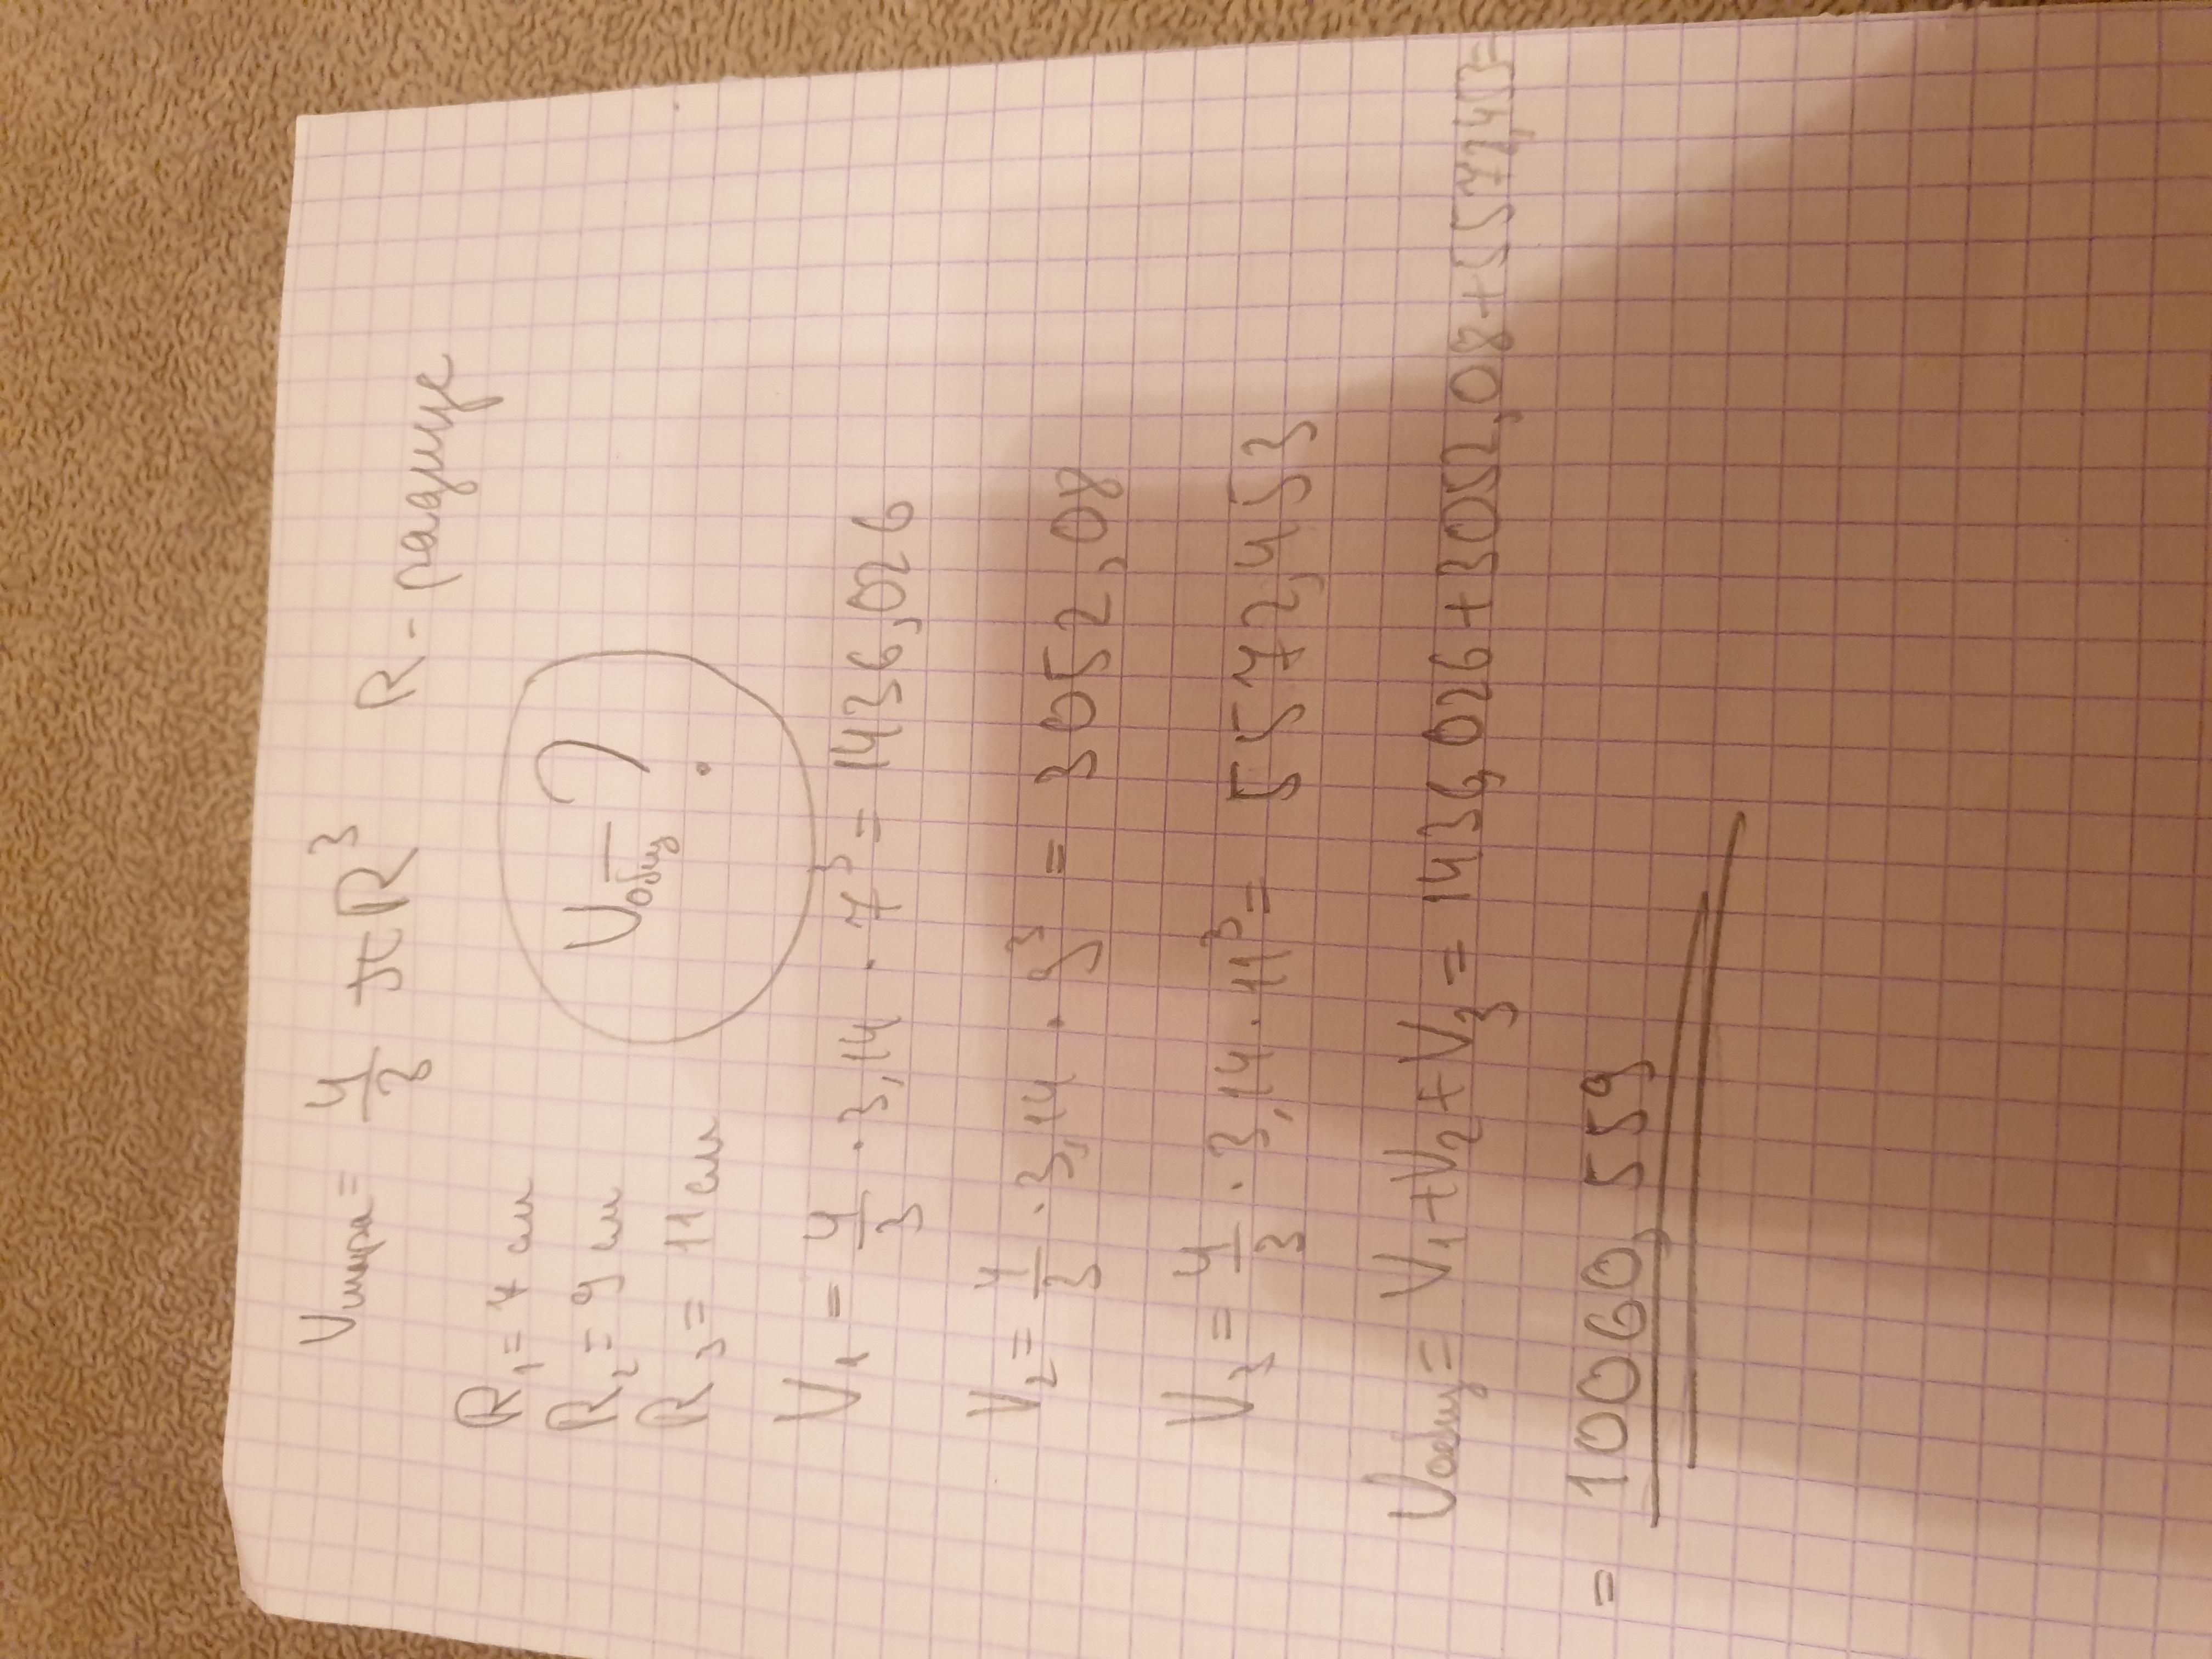 Vшара = 4/3 πR³ R - радиус
R₁ = 7 см
R₂ = 9 см
R₃ = 11 см
Vобщ - ?
V₁ = 4/3 · 3,14 · 7³ = 1436,026
V₂ = 4/3 · 3,14 · 9³ = 3052,08
V₃ = 4/3 · 3,14 · 11³ = 5572,453
Vобщ = V₁ + V₂ + V₃ = 1436,026 + 3052,08 + 5572,453 =
= 10060,559